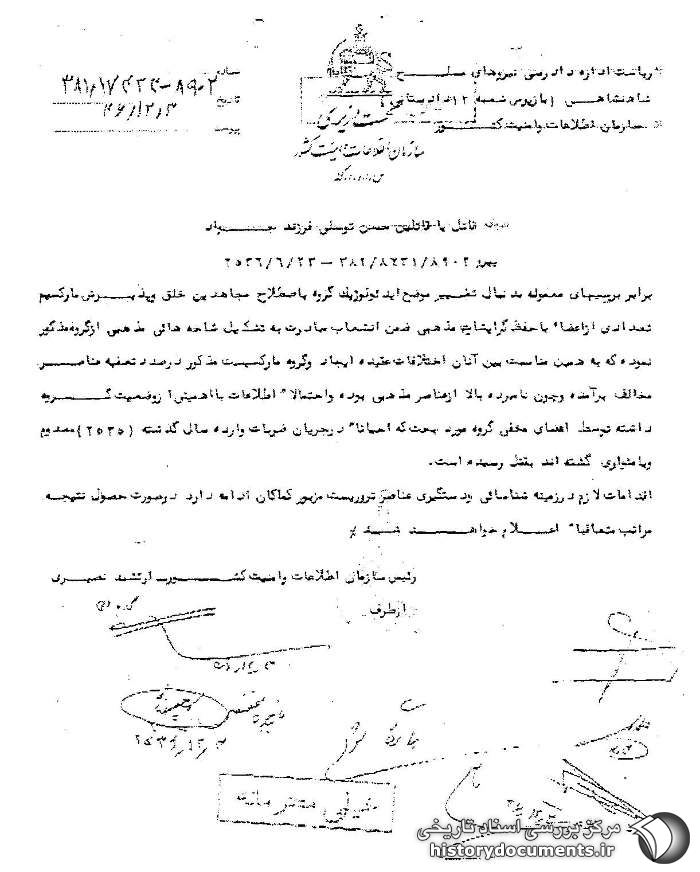 ریاست اداره دادرسی نیروهای مسلح
شاهنشاهی (بازپرس شعبه ۱۲ دادستانی)
سازمان اطلاعات و امنیت کشور
شماره ۳۸۱/۱۷۴۳۴-۸۹۰۲
تاریخ ۳۶/۱۲/۳
پیوست
نخست وزیری
سازمان اطلاعات و امنیت کشور
درباره قاتل یا قاتلین حسن توسلی فرزند جواد
پیرو ۳۸۲/۸۶۳۱/۸۹۰۲ – ۲۵۳۶/۶/۲۳
برابر بررسیهای معموله بدنبال تغییر موضع ایدئولوژیک گروه باصطلاح مجاهدین خلق و پذیرش مارکسیم
تعدادی از اعضاء با حفظ گرایشات مذهبی ضمن انشعاب مبادرت به تشکیل شاخه های مذهبی از گروه مذکور
نموده که به همین مناسبت بین آنان اختلافات عقیده ایجاد و گروه مارکسیست مذکور درصدد تصفیه عناصر
مخالف برآمده و چون نامبرده بالا از عناصر مذهبی بوده و احتمالاً اطلاعات با اهمیتی از وضعیت گروه
داشته توسط اعضای مخفی گروه مورد بحث که احیاناً در جریان ضربات وارده سال گذشته (۲۵۳۵) معدوم
و یا متواری گشته اند بقتل رسیده است.
اقدامات لازم در زمینه شناسائی و دستگیری عناصر تروریست مزبور کماکان ادامه دارد در صورت حصول نتیجه
مراتب متعاقباً اعلام خواهد شد
رئیس سازمان اطلاعات و امنیت کشور ارتشبد نصیری
از طرف
۲۵۳۶/۱۲/۲
خیلی محرمانه
مرکز بررسی اسناد تاریخی
historydocuments.ir